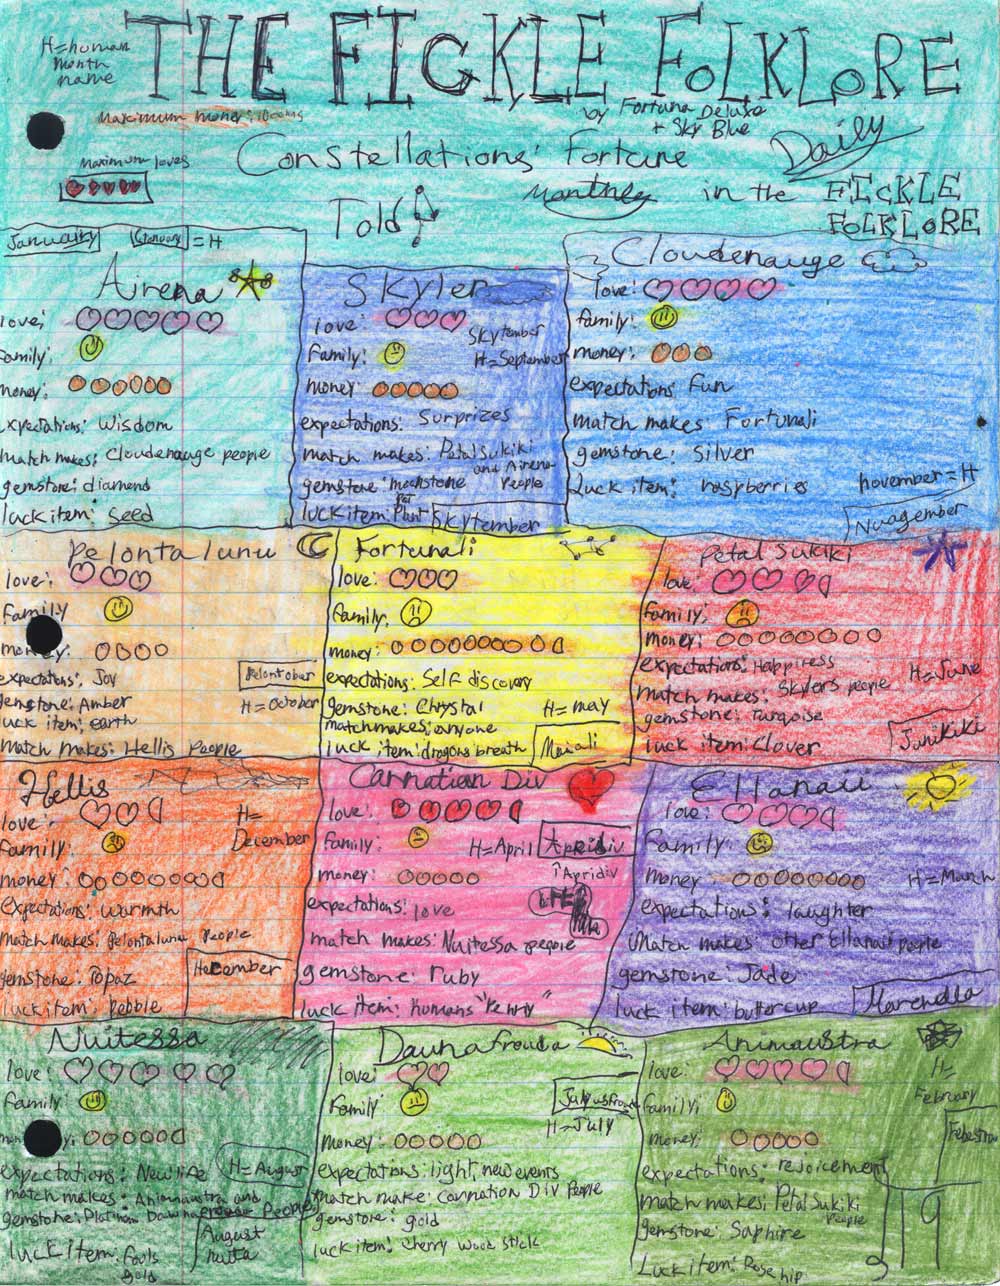 THE FICKLE FOLKLORE
H=human
month
name
by Fortuna Deluxe
+ Sky Blue
Maximum money: 10 coins
Maximum loves
Constellations' Fortune
Daily
Monthly in the FICKLE
FOLKLORE
Told
January = H
Airena
love:
Family:
money:
expectations: Wisdom
match makes: Cloudenauge people
gemstone: diamond
luck item: Seed
Skyler
love:
Skytember
Family:
H=September
money
expectations: Surprizes
match makes: Petal Sukiki
and Airena
People
gemstone: moonstone
luck item: Plant
Skytember
Cloudenauge
love:
family:
money:
expectations: Fun
match makes Fortunali
gemstone: Silver
Luck item: rasyberries
november = H
Nuagember
Pelonta lunu
love:
Family
money:
expectations: Joy
Pelontober
H=October
gemstone: Amber
luck item: earth
match makes: Hellis People
Fortunali
love:
family:
money:
expectations: Self discovery
gemstone: Chrystal
H=may
matchmakes: anyone
luck item: dragons breath
Maiali
Petal Sukiki
love
Family:
money:
expectations: Happiness
H=June
match makes: Skylers people
gemstone: Turqoise
luck item: Clover
Junikiki
Hellis
love:
H=
December
Family:
money:
Expectations: warmth
match makes: Pelontaluna People
gemstone: Topaz
Hecember
luck item: Pebble
Carnation Div
love:
family:
H=April
Apridiv
↑Apridiv
money:
expectations: love
match makes: Nuitessa people
gemstone: ruby
luck item: humans "Penny"
Ellanaii
love:
Family:
money
H=March
expectations: laughter
Match makes: other Ellanaii people
gemstone: Jade
luck item: buttercup
Marchella
Nuitessa
love:
Family
money:
expectations: New life
H=August
match makes: Animaustra and
gemstone: Platinum Daunafrouda People
luck item: fools
gold
August
nuita
Daunafrouda
love:
Family:
money:
H=July
expectations: light, new events
match make: Carnation Div People
gemstone: gold
luck item: Cherry wood stick
Animaustra
love:
H=
February
family:
money:
expectations: rejoicement
match makes: Petal Sukiki
People
gemstone: Saphire
Luck item: Rose hip